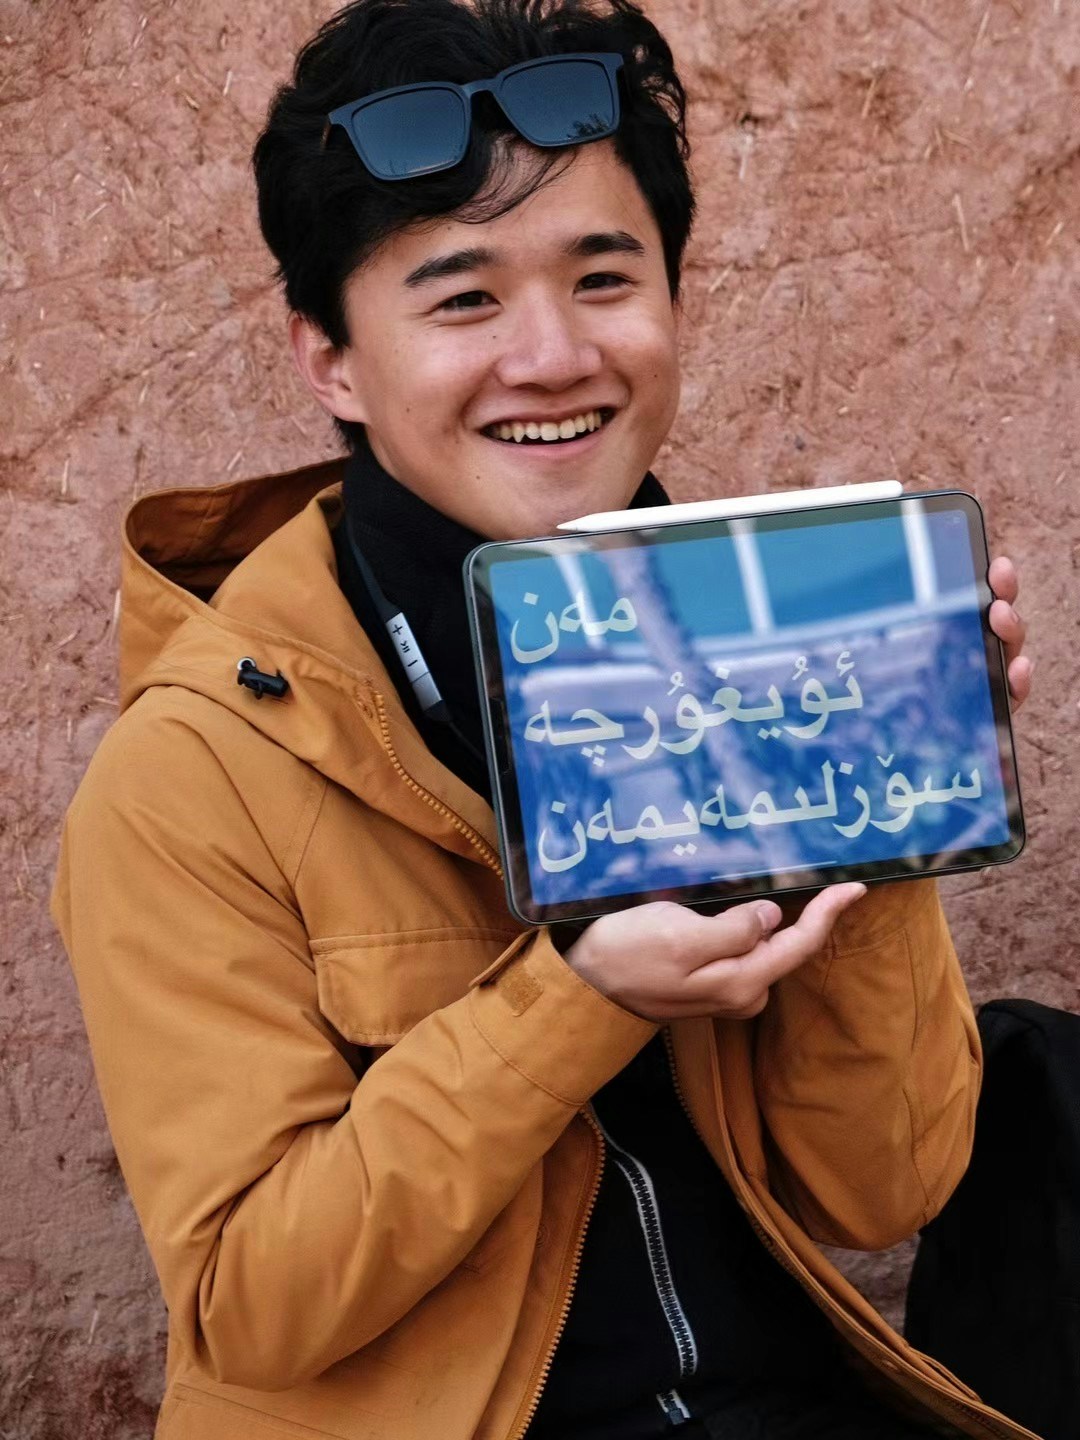 مەن
ئۇيغۇرچە
سۆزلىمەيمەن